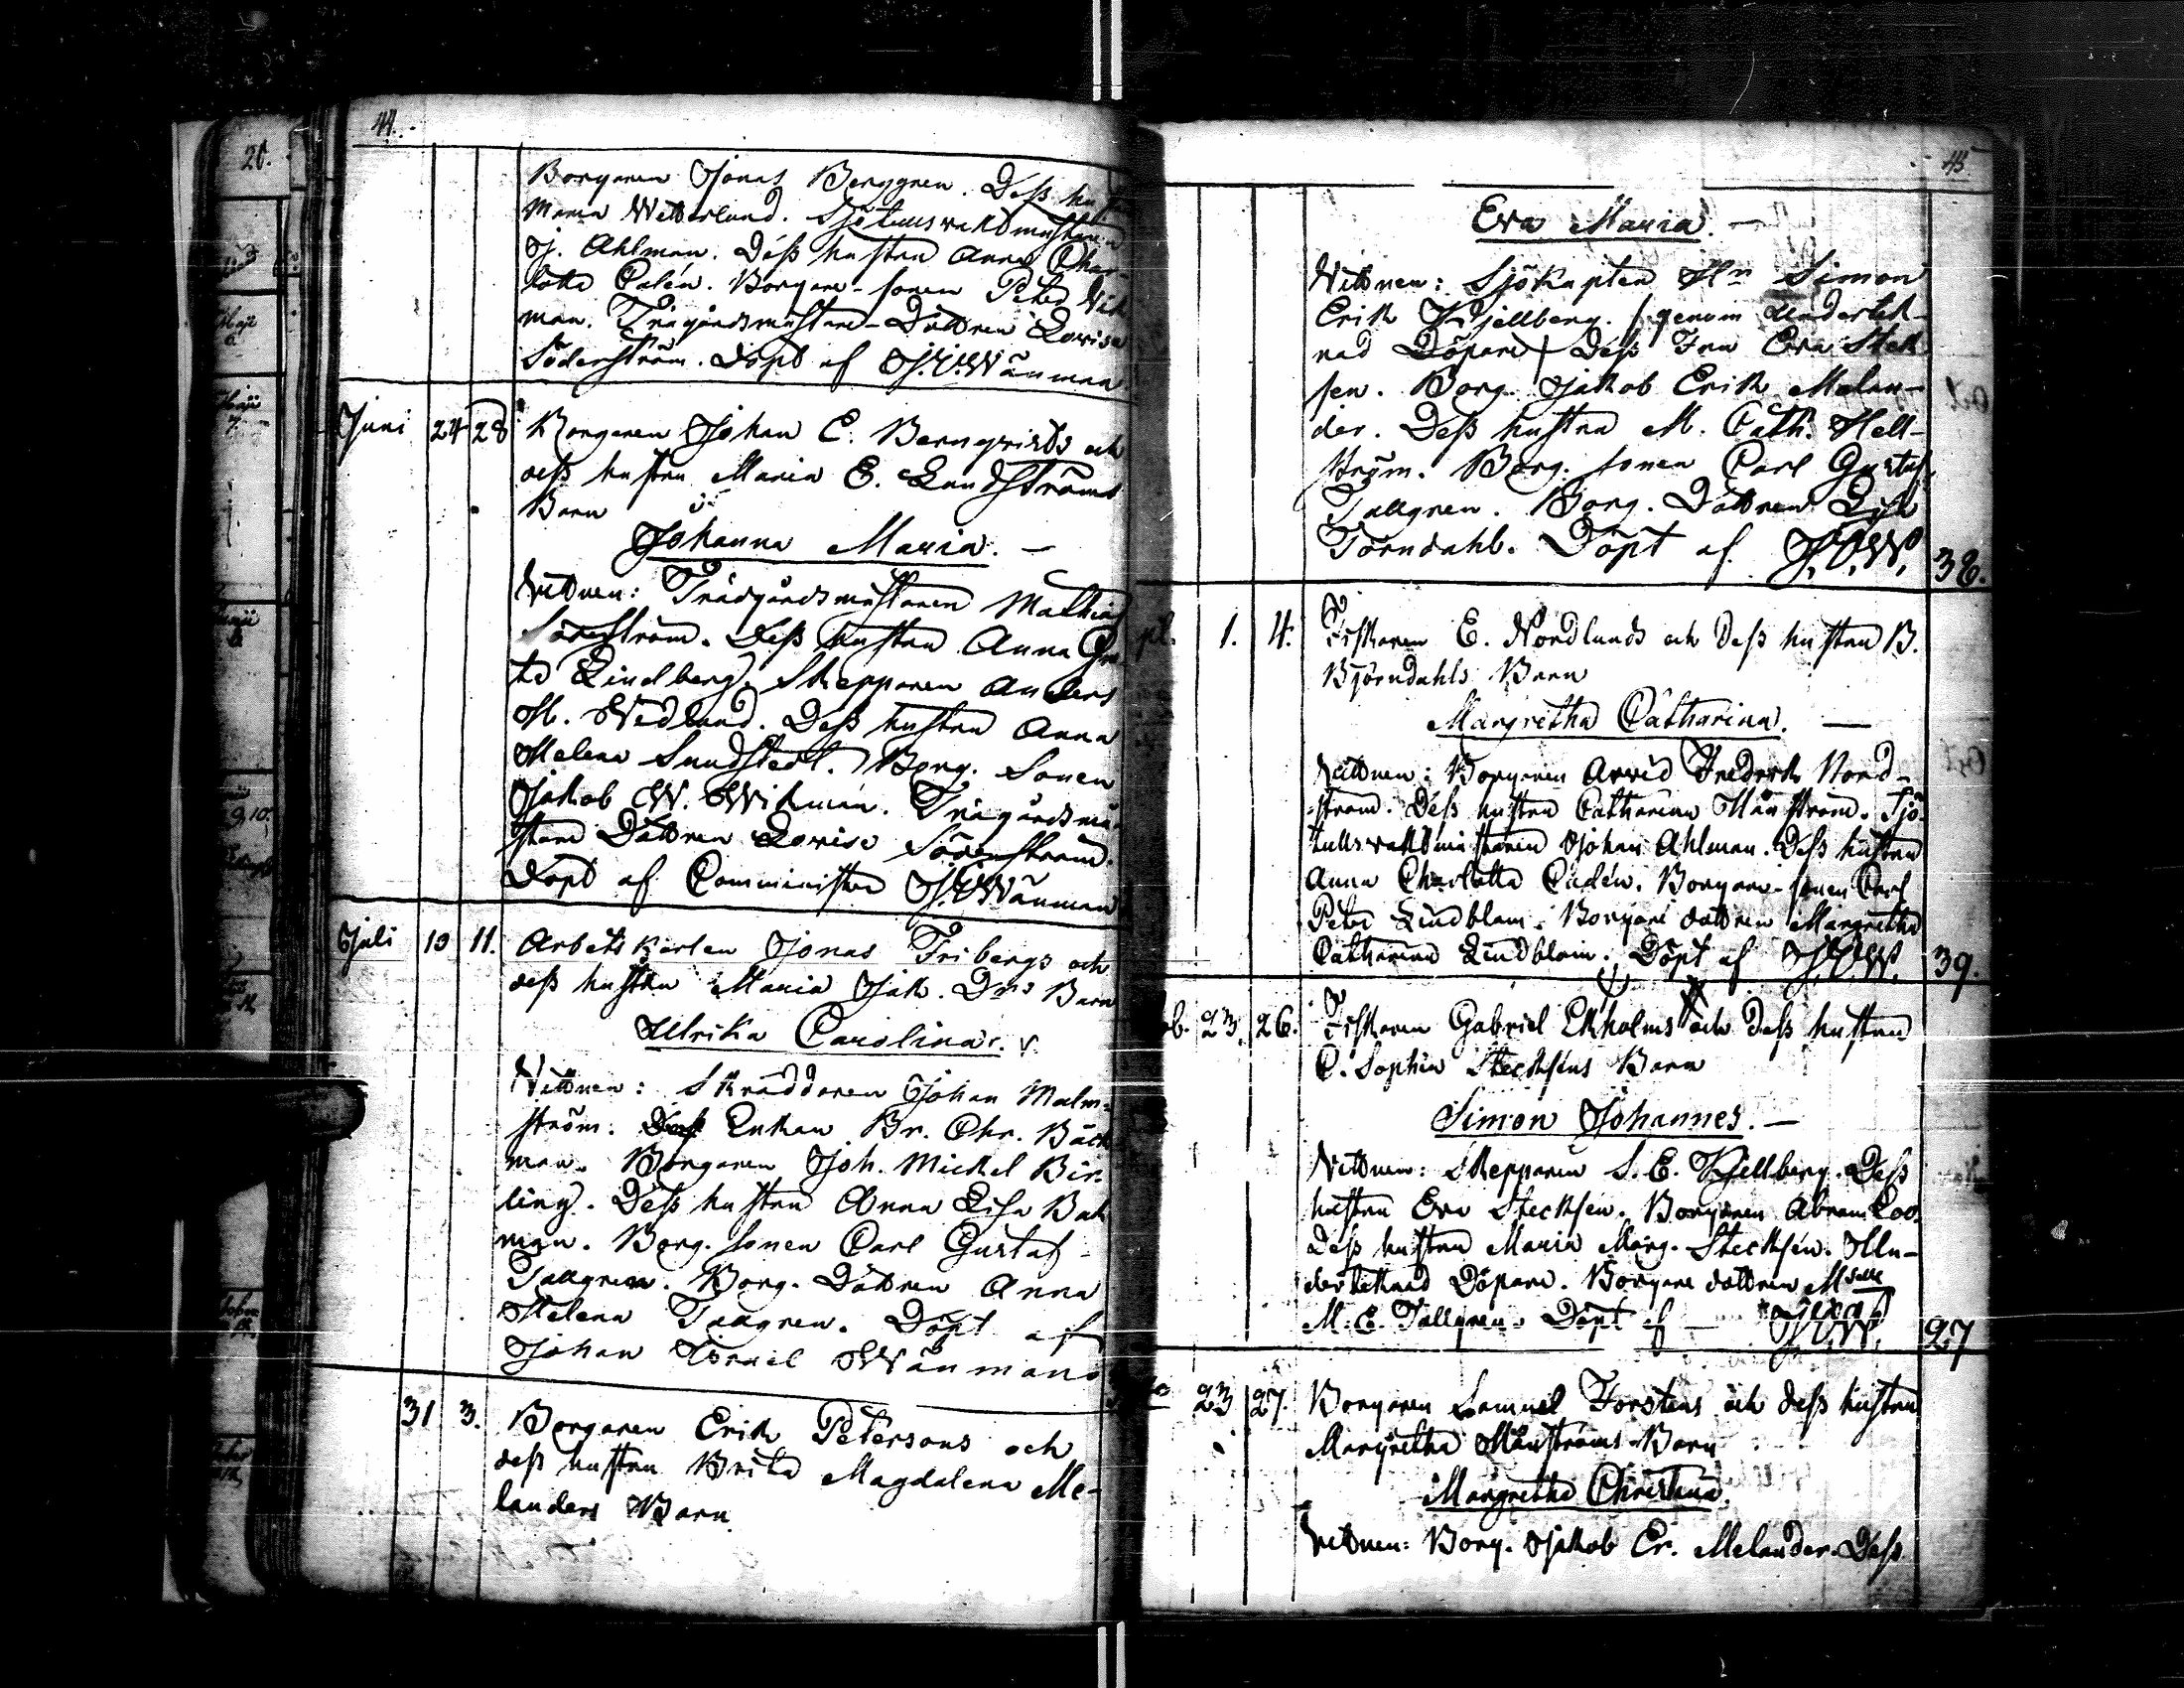 44.
Borgaren Jonas Berggren. Dess hustru
Maria Wetterlund. Sjötullsvaktmästaren
J. Ahlman. Dess hustru Anna Char-
lotta Calén. Borgare-sonen Peter Wik
man. Trägårdsmästare-Dottren Lovisa
Söderström. Döpt af J. I. Wänman
Juni 24 28 Borgaren Johan E. Bernqvists och
dess hustru Maria E. Lundströms
Barn
Johanna Maria. —
Vittnen: Trädgårdsmästaren Mathias
Söderström. Dess hustru Anna Gre-
ta Lindberg. Skepparen Anders
H. Wedlund. Dess hustru Anna
Helena Sundstedt. Borg. Sonen
Jakob W. Wikman. Trägårdsmä-
stare Dottren Lovisa Söderström.
Döpt af Comministra J. I. Wänman
Juli 10 11. Arbetskarlen Jonas Fribergs och
dess hustru Maria Jak. Drs Barn
Ulrika Carolina.
Vittnen: Skräddaren Johan Malm-
ström. Enkan Br. Chr. Back
man. Borgaren Joh. Mickel Bir-
ling. Dess hustru Anna Lisa Bak
man. Borg. sonen Carl Gustaf
Tallgren. Borg. Dottren Anna
Helena Tallgren. Döpt af
Johan Israel Wänman
31 3. Borgaren Erik Petersons och
dess hustru Brita Magdalena Me-
landers Barn
45
Eva Maria. —
Vittnen: Sjökapten Hn Simon
Erik Kjellberg. (genom Undertek-
nad Döpare) Dess Fru Eva Steck
sen. Borg. Jakob Erik Melan-
der. Dess hustru M. Cath. Hell-
ström. Borg. sonen Carl Gustaf
Tallgren. Borg. Dottren Lisa
Törndahl. Döpt af J. I. W. 38.
1. 4. Fiskaren E. Nordlunds och Dess hustru B.
Björndahls Barn
Margretha Catharina. —
Vittnen: Borgaren Arvid Fredrik Nord-
ström. Dess hustru Catharina Månström. Sjö-
tullsvaktmästaren Johan Ahlman. Dess hustru
Anna Charlotta Calén. Borgare-sonen Carl
Peter Lindblom. Borgare dottren Margretha
Catharina Lindblom. Döpt af J. I. W. 39.
ob. 23. 26. Fiskaren Gabriel Ekholms och Dess hustru
C. Sophia Stecksens Barn
Simon Johannes. —
Vittnen: Skepparen S. E. Kjellberg. Dess
hustru Eva Stecksen. Borgaren Abram Loo.
Dess hustru Maria Marg. Stecksén. Un-
dertecknad Döpare. Borgare dottren Mselle
M. E. Tallgren. Döpt af — J. I. W. 27
23 27. Borgaren Samuel Forstens och dess hustru
Margretha Månströms Barn
Margretha Christina.
Vittnen: Borg. Jakob Er. Melander. Dess